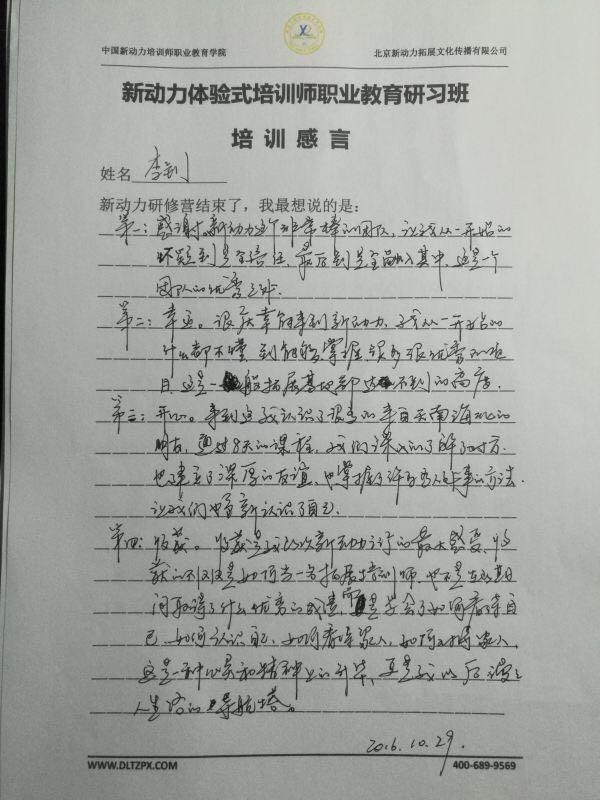 中国新动力培训师职业教育学院
北京新动力拓展文化传播有限公司
新动力体验式培训师职业教育研习班
培训感言
姓名 李剑
新动力研修营结束了，我最想说的是：
第一：感谢。新动力这个非常棒的团队，让我从一开始的
怀疑到完全信任，最后到完全融入其中，这是一个
团队的优秀之处。
第二：幸运。很庆幸能来到新动力，我从一开始的
什么都不懂到能够掌握很多很优秀的项
目，这是一般拓展基地都达不到的高度。
第三：开心。来到这我认识了很多的来自天南海北的
朋友，通过8天的课程，我们深入的了解了对方
也建立了深厚的友谊，也掌握了许多为人处事的方法
让我们也重新认识了自己。
第四：收获。收获是我这次新动力之行的最大感受，收
获的不仅仅是如何当一名拓展培训师，也不是在此期
间取得了什么优秀的成绩，而是学会了如何看待自
己，如何认识自己，如何看待家人，如何对待家人，
这是一种心灵和精神上的升华，更是我以后漫漫
人生路的导航塔。
2016.10.29.
WWW.DLTZPX.COM
400-689-9569